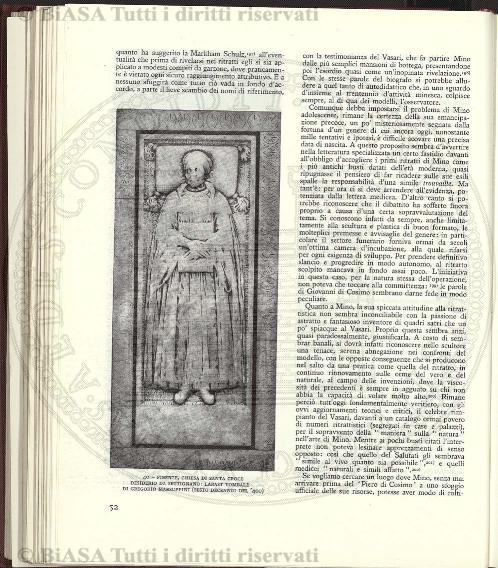 © BiASA Tutti i diritti riservati
quanto ha suggerito la Markham Schulz, all'even-
tualità che prima di rivelarsi nei ritratti egli si sia ap-
plicato a modesti compiti da garzone, dove praticamen-
te è vietato ogni sicuro raggiungimento attributivo. E a
nessuno sfuggirà come tutto ciò vada in fondo d'ac-
cordo, a parte il lieve scambio dei nomi di riferimento,
40 – FIRENZE, CHIESA DI SANTA CROCE
DESIDERIO DA SETTIGNANO: LAPIDE TOMBALE
DI GREGORIO MARSUPPINI (SESTO DECENNIO DEL '400)
52
con la testimonianza del Vasari, che fa partire Mino
dalle più semplici mansioni di bottega, presentandone
poi l'esordio quasi come un'inopinata rivelazione.
Con le stesse parole del biografo si potrebbe allu-
dere a quel tanto di autodidattico che, in uno sguardo
d'insieme al trentennio d'attività minesca, colpisce
sempre, al di qua dei modelli, l'osservatore.
Comunque debba impostarsi il problema di Mino
adolescente, rimane la certezza della sua emancipa-
zione precoce, un po' misteriosamente segnata dalla
fortuna d'un genere di cui ancora oggi, nonostante
mille tentativi e ipotesi, è difficile scovare una precisa
data di nascita. A questo proposito sembra d'avvertire
nella letteratura specializzata un certo fastidio davanti
all'obbligo d'accogliere i primi ritratti di Mino come
i più antichi busti datati dell'età moderna, quasi
ripugnasse il pensiero di far ricadere sulle sue esili
spalle la responsabilità d'una simile trouvaille. Ma
tant'è: per ora ci si deve arrendere all'evidenza, po-
tenziata dalla lettera medicea. D'altro canto si po-
trebbe riconoscere che il dibattito ha sofferto finora
proprio a causa d'una certa sopravvalutazione del
tema. Si conoscono infatti da sempre, anche limita-
tamente alla scultura e plastica di buon formato, le
molteplici premesse e avvisaglie del genere: in parti-
colare il settore funerario forniva ormai da secoli
un'ottima camera d'incubazione, alla quale rifarsi
per ogni esigenza di sviluppo. Per prendere definitivo
slancio e progredire in modo autonomo, al ritratto
scolpito mancava in fondo assai poco. L'iniziativa
in questo caso, per la natura stessa dell'operazione,
non poteva che toccare alla committenza: le parole
di Giovanni di Cosimo sembrano darne fede in modo
peculiare.
Quanto a Mino, la sua spiccata attitudine alla ritrat-
tistica non sembra inconciliabile con la passione di
astratto e fantasioso inventore di quadri sacri che un
po' spiacque al Vasari. Proprio questa sembra anzi,
quasi paradossalmente, giustificarla. A costo di sem-
brar banali, si dovrà infatti riconoscere nello scultore
una tenace, serena abnegazione nei confronti del
modello, con le opposte conseguenze che si producono
nel salto da una pratica come quella del ritratto, in
continuo rinnovamento sulle orme del vero e del
naturale, al campo delle invenzioni, dove la visco-
sità dei precedenti è sempre in agguato su chi non
abbia la capacità di volare molto alto. Rimane
perciò tutt'oggi fondamentalmente veritiero, con gli
ovvi aggiornamenti teorici e critici, il celebre rim-
pianto del Vasari, davanti a un catalogo ormai povero
di numeri ritrattistici (segregati in case e palazzi),
per il sopravvento della "maniera" sulla "natura"
nell'arte di Mino. Mentre ai pochi busti citati l'inter-
prete non poteva lesinare apprezzamenti di senso
opposto: così che quello del Salutati gli sembrava
"simile al vivo quanto sia possibile", e quelli
medicei "naturali e simili affatto".
Se vogliamo cercare un luogo dove Mino, senza mai
arrivare prima del "Piero di Cosimo" a uno sfoggio
ufficiale delle sue risorse, potesse aver modo di colti-
© BiASA Tutti i diritti riservati